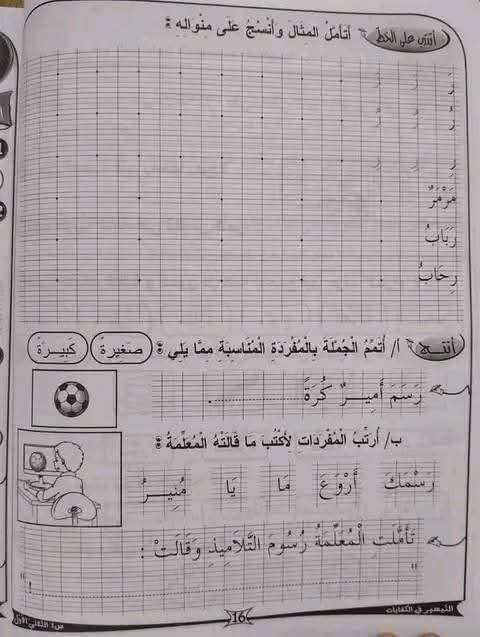 أتدرب على الخط أتأمل المثال وأنسج على منواله :
رَ رَ رَ
رُ رُ رُ
رِ رِ رِ
مَرْمَرٌ
رَبَابُ
رِحَابُ
أنتـــج أ/ أُتَمِّمُ الْجُمْلَةَ بِالْمُفْرَدَةِ الْمُنَاسِبَةِ مِمَّا يَلِي : صَغِيرَةً كَبِيـرَةً
رَسَمَ أَمِيـرٌ كُرَةً ................
ب/ أُرَتِّبُ الْمُفْرَدَاتِ لِأَكْتُبَ مَا قَالَتْهُ الْمُعَلِّمَةُ :
رَسْمَكَ أَرْوَعَ مَا يَا مُنِيـرُ
تَأَمَّلَتِ الْمُعَلِّمَةُ رُسُومَ التَّلَامِيذِ وَقَالَتْ :
" ! "
التيسير في الكفايات 16